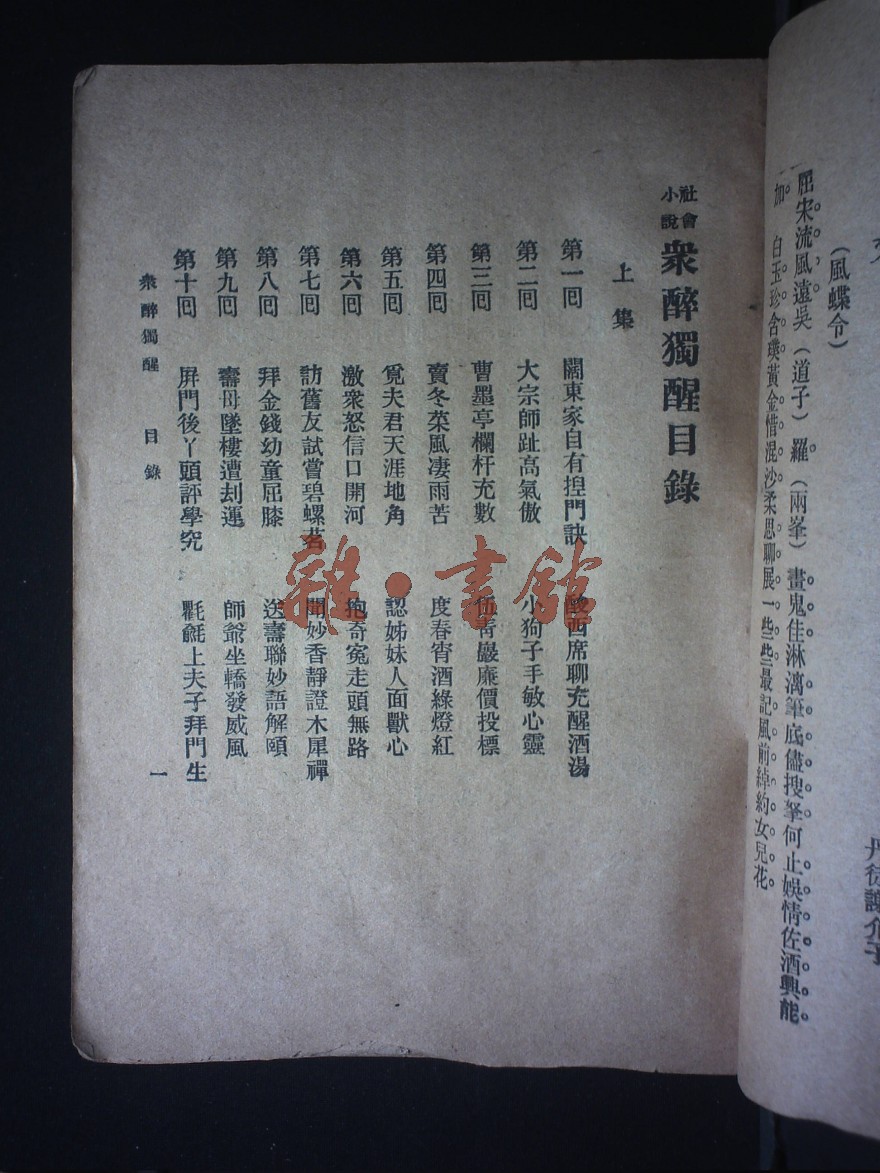 丹徒謝介子
(風蝶令)
屈宋流風遠吳(道子)羅(兩峯)畫鬼佳淋漓筆底儘搜拏何止娛情佐酒興能
加 白玉珍含璞黃金惜混沙柔思聊展一些些最記風前綽約女兒花
社會小說 衆醉獨醒目錄
上集
第一回 闊東家自有揑門訣 酸西席聊充醒酒湯
第二回 大宗師趾高氣傲 小狗子手敏心靈
第三回 曹墨亭欄杆充數 伍靑巖廉價投標
第四回 賣冬菜風凄雨苦 度春宵酒綠燈紅
第五回 覓夫君天涯地角 認姊妹人面獸心
第六回 激衆怒信口開河 抱奇寃走頭無路
第七回 訪舊友試嘗碧螺茗 聞妙香靜證木犀禪
第八回 拜金錢幼童屈膝 送壽聯妙語解頤
第九回 壽母墜樓遭刦運 師爺坐轎發威風
第十回 屛門後丫頭評學究 氍毹上夫子拜門生
衆醉獨醒 目錄 一
雜·書館